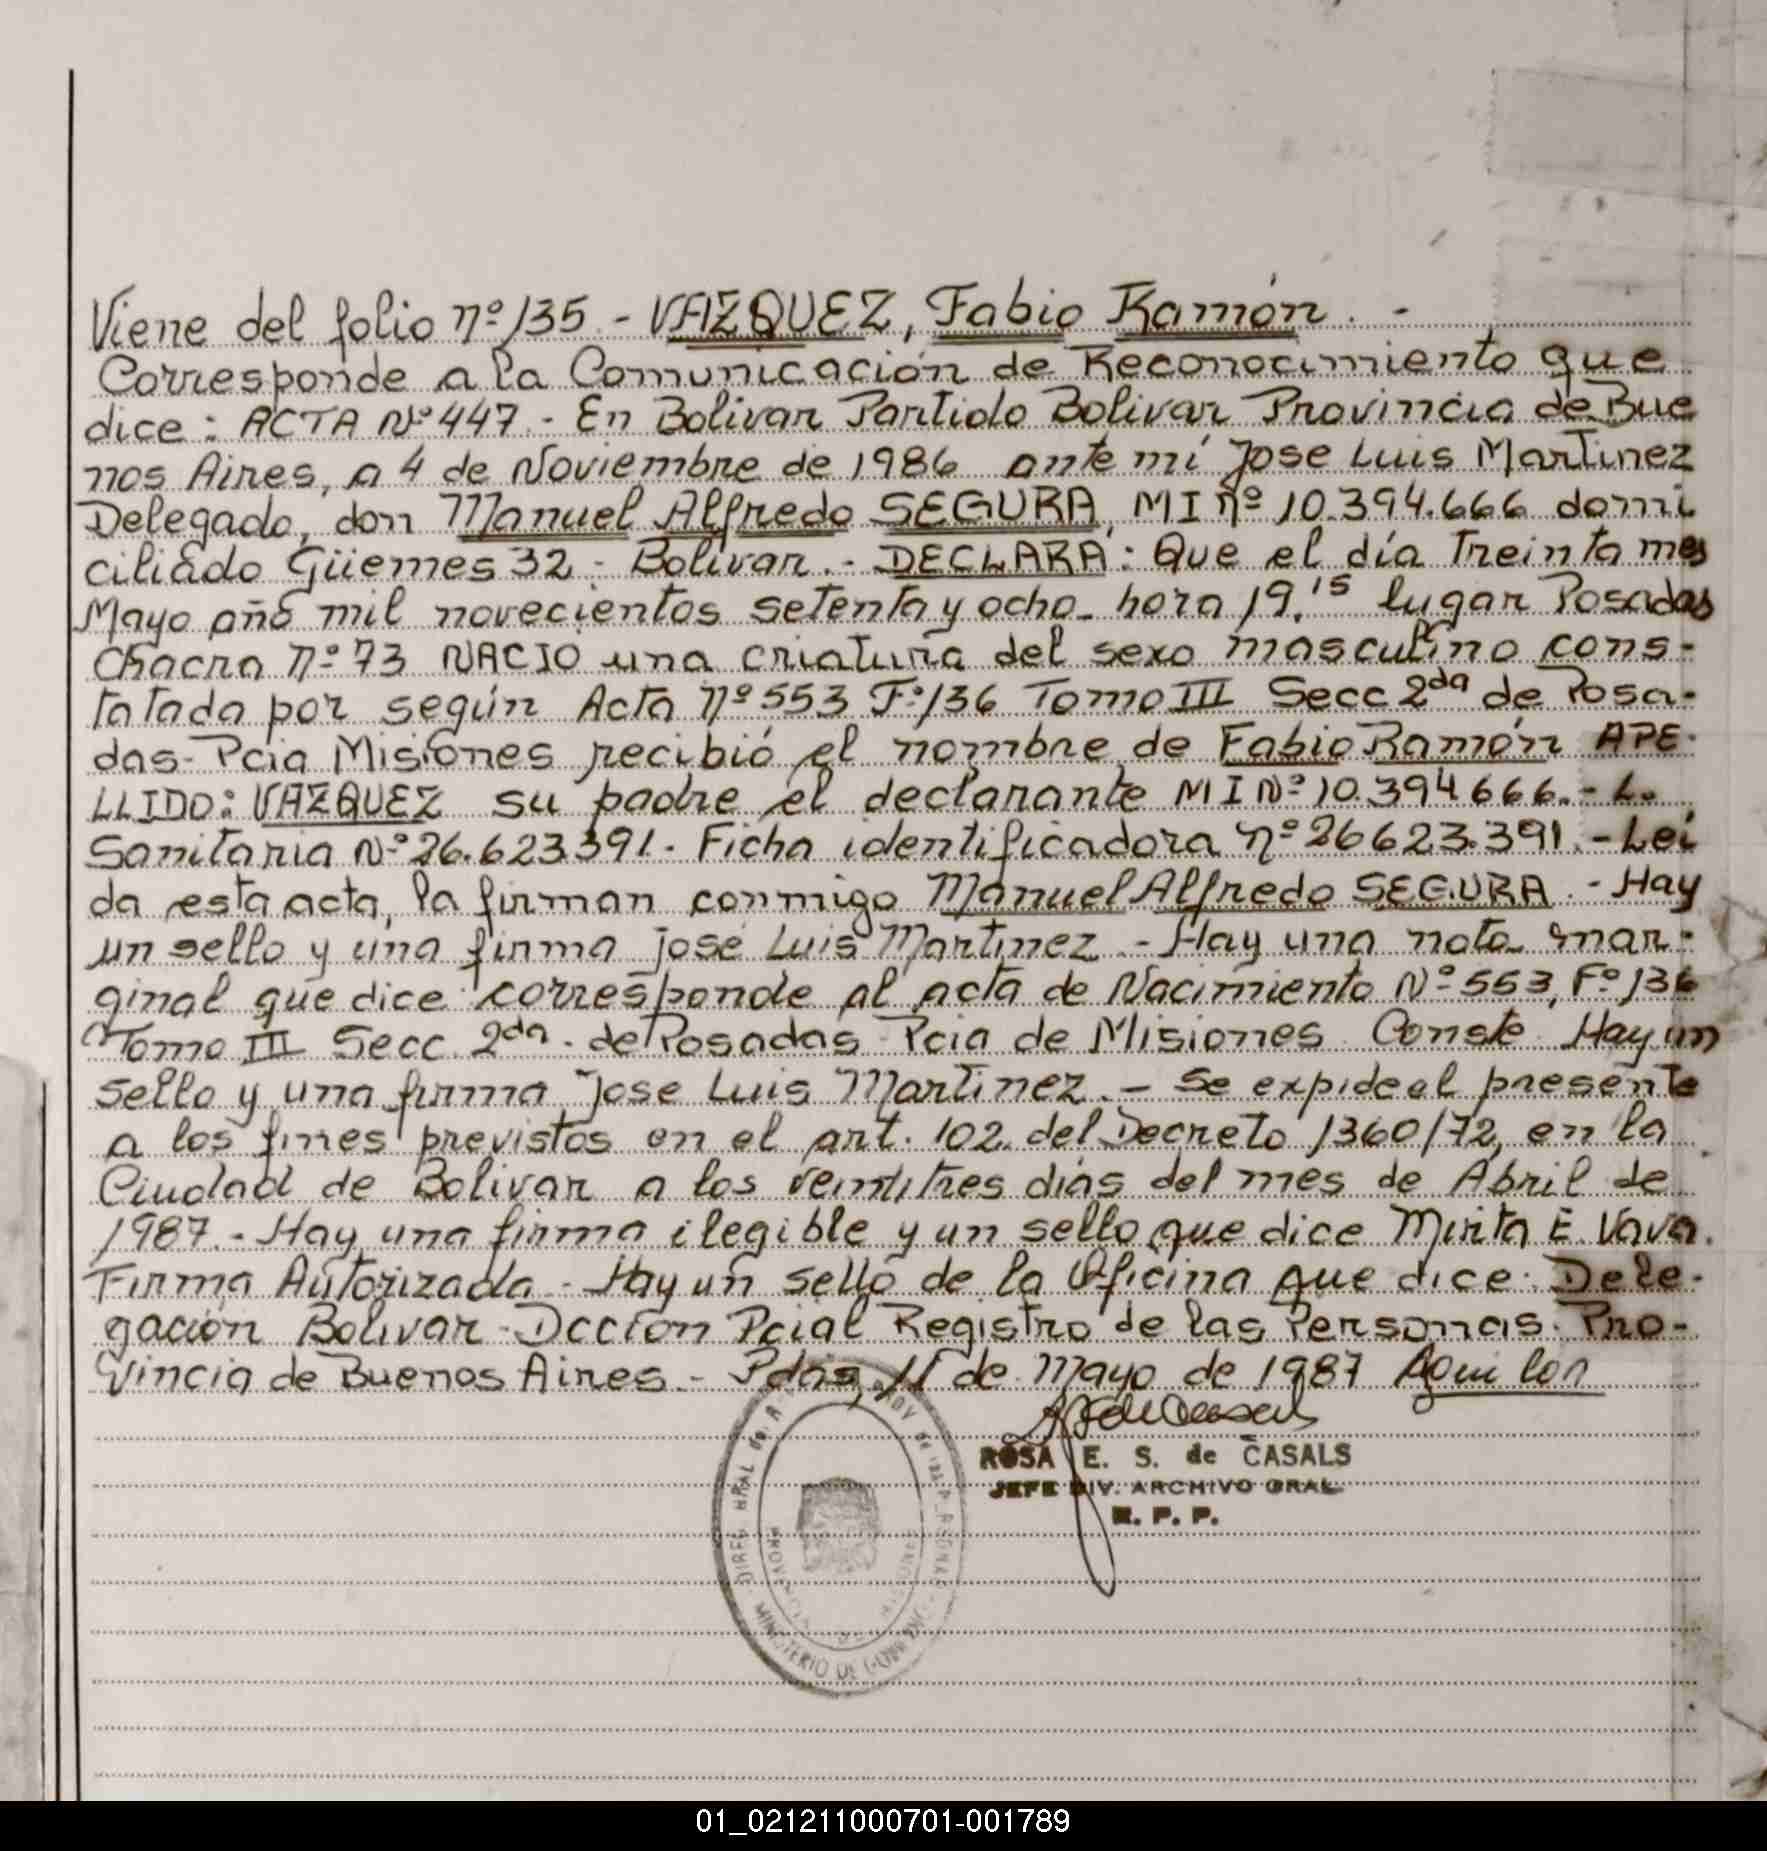 Viene del folio nº 135 - VAZQUEZ, Fabio Ramón. -
Corresponde a la Comunicación de Reconocimiento que
dice: ACTA Nº 447.- En Bolivar Partido Bolivar Provincia de Bue
nos Aires, a 4 de Noviembre de 1986 ante mí Jose Luis Martinez
Delegado, don Manuel Alfredo SEGURA, MI nº 10.394.666 domi
ciliado Güemes 32 - Bolívar.- DECLARA: Que el día Treinta mes
Mayo año mil novecientos setenta y ocho- hora 19.15 lugar Posadas
Chacra Nº 73 NACIO una criatura del sexo masculino cons-
tatada por según Acta nº 553 Fº 136 Tomo III Secc 2da de Posa-
das- Pcia Misiones recibió el nombre de Fabio Ramón APE-
LLIDO: VAZQUEZ su padre el declarante MI Nº 10.394666.- L.
Sanitaria Nº 26.623391. Ficha identificadora nº 26623.391.- Leí
da esta acta, la firman conmigo Manuel Alfredo SEGURA.- Hay
un sello y una firma José Luis Martinez.- Hay una nota mar-
ginal que dice corresponde al acta de Nacimiento Nº 553, Fº 136
Tomo III Secc. 2da. de Posadas Pcia de Misiones Conste. Hay un
sello y una firma Jose Luis Martinez.- Se expide el presente
a los fines previstos en el art. 102. del Decreto 1360/72, en la
Ciudad de Bolivar a los veintitres días del mes de Abril de
1987.- Hay una firma ilegible y un sello que dice Mirta E. Vava.
Firma Autorizada - Hay un sello de la Oficina que dice: Dele-
gación Bolivar- Dccion Pcial Registro de las Personas. Pro-
vincia de Buenos Aires.- Pdas, 11 de Mayo de 1987
ROSA E. S. de CASALS
JEFE DIV. ARCHIVO GRAL.
R. P. P.
MINISTERIO DE
01_021211000701-001789